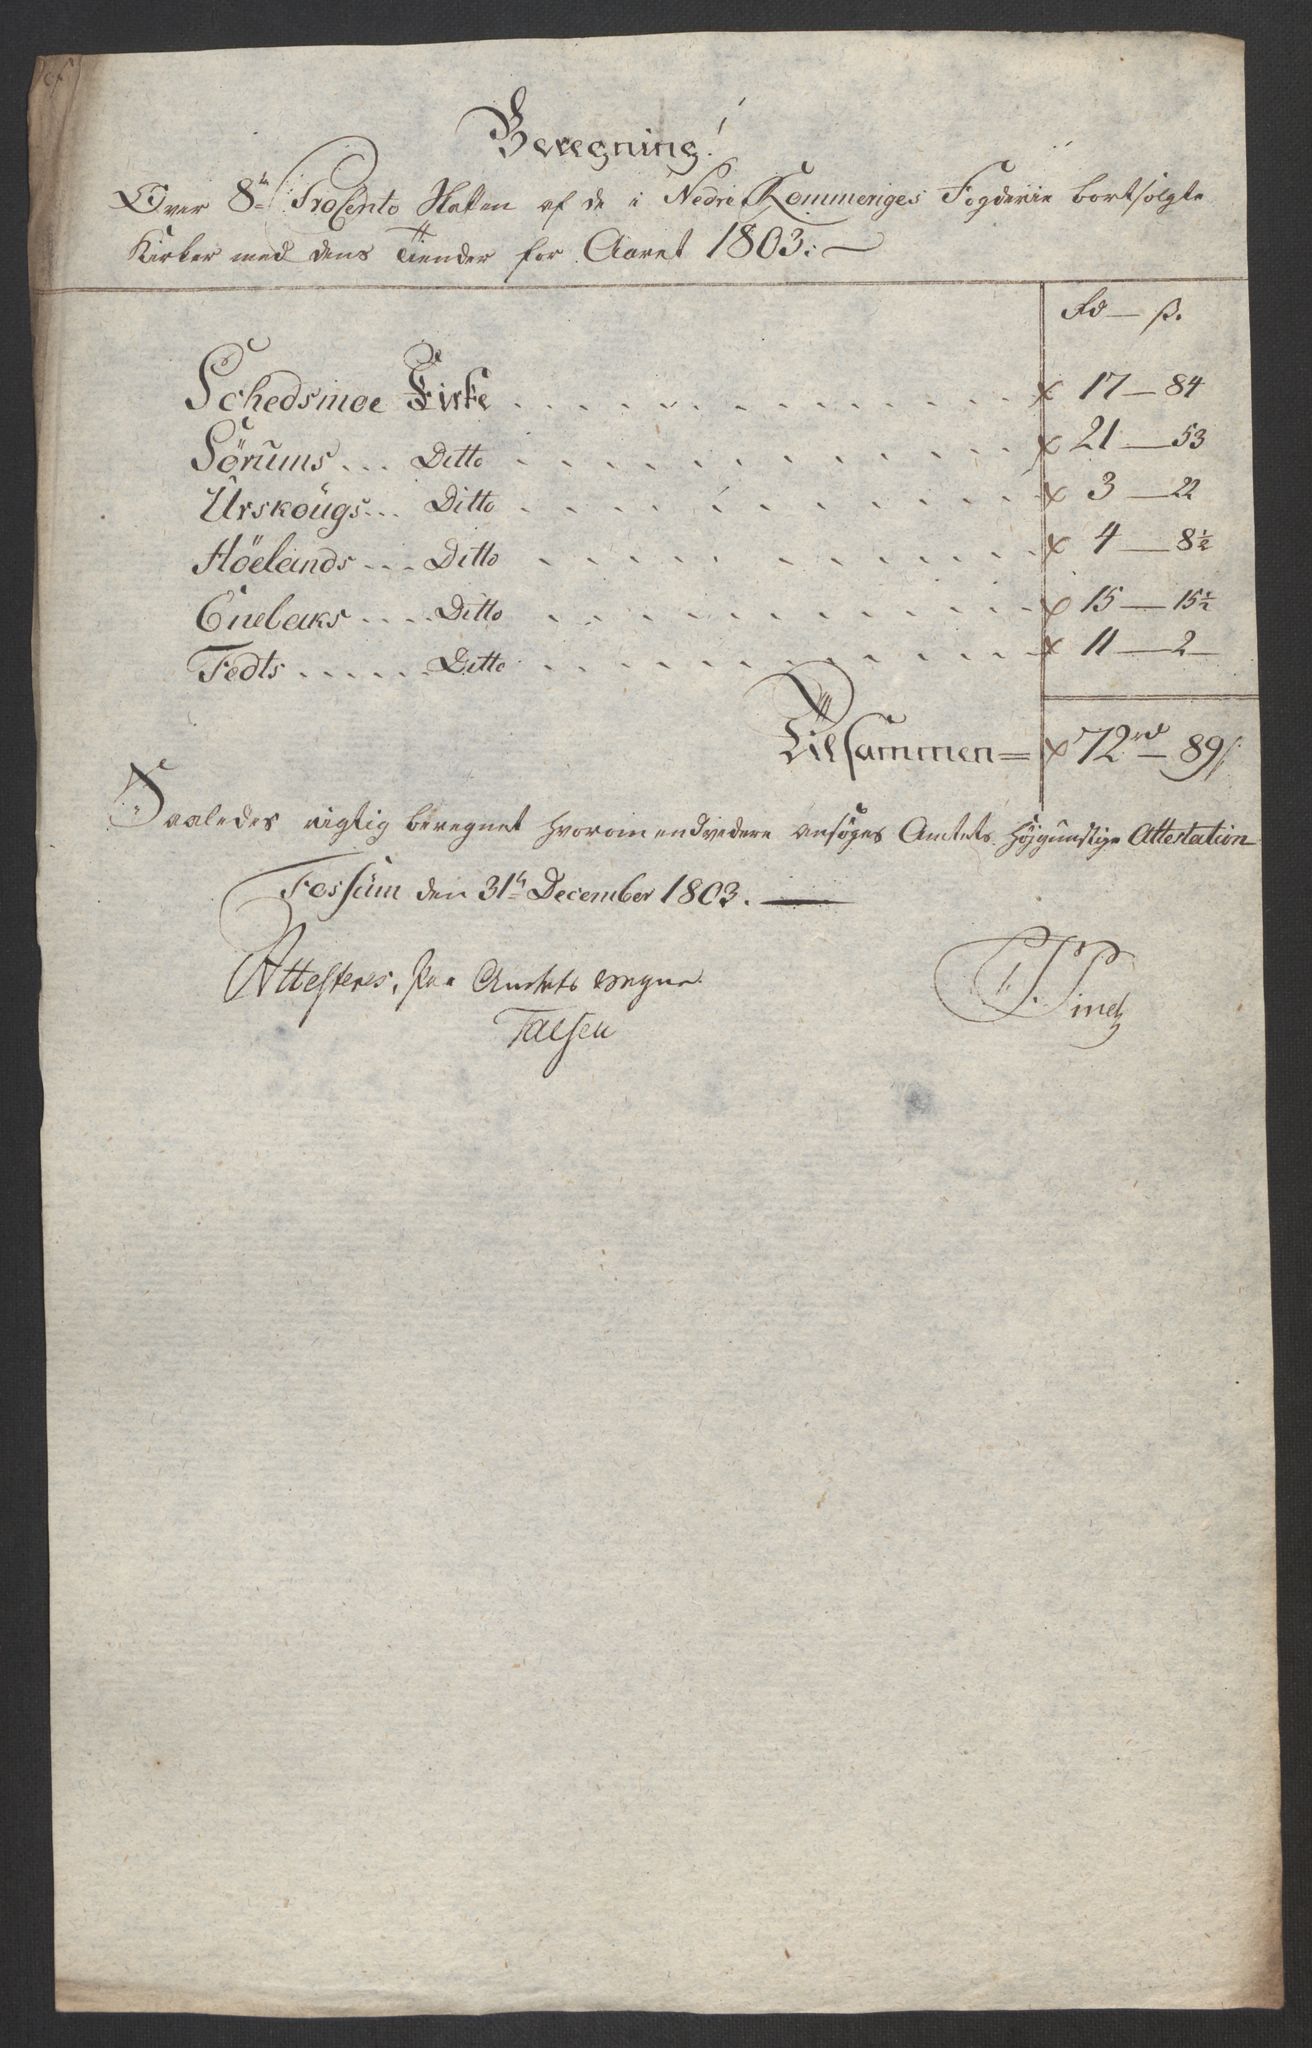 Beregning!
Over 8te ProCento Skatten af de i Nedre Rommeriges Fogderie bortsolgte
Kirker med dens Tiender for Aaret 1803:
Rd — ß.
Schedsmoe Kirke . . . . . . . . . . . x 17 — 84
Sörums... Ditto . . . . . . . . . . . x 21 — 53
Urskougs... Ditto . . . . . . . . . . x 3 — 22
Höelands... Ditto . . . . . . . . . . x 4 — 8½
Enebaks.... Ditto . . . . . . . . . . x 15 — 15½
Fedts...... Ditto . . . . . . . . . . x 11 — 2 —
Tilsammen = x 72rd — 89ß
Saaledes rigtig beregnet hvorom endvidere ansöges Amtets Höjgunstige Attestation
Fossum den 31te December 1803.
Attesteres, paa Amtets Vegne.
Falsen